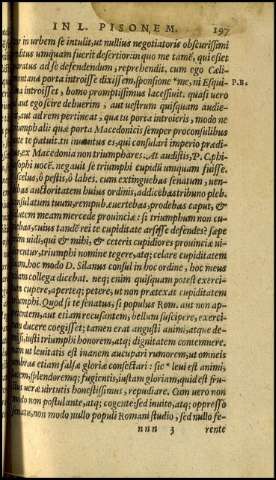 IN L. PISONEM. 197
in urbem se intulit, ut nullius negotiatoris obscurissimi
reditus unquam fuerit desertior. in quo me tamē, qui esset
paratus ad se defendendum, reprehendit. cum ego Cæli-
montana porta introisse dixissem, sponsione *me, ni Esqui- P.B.
lina introisset, homo promptissimus lacessiuit. quasi uero
aut ego scire debuerim, aut uestrûm quisquam audie-
rit, aut ad rem pertineat, qua tu porta introieris, modo ne
triumphali: quæ porta Macedonicis semper proconsulibus
ante te patuit. tu inuentus es, qui consulari imperio prædi-
tus ex Macedonia non triumphares. At audistis, P. C.
philosophi uocē. negauit se triumphi cupidū unquam fuisse.
ô scelus, ô pestis, ô labes. cum extinguebas senatum, uen-
debas auctoritatem huius ordinis, addicebas tribuno pleb.
consulatum tuum, rempub. euertebas, prodebas caput, &
salutem meam mercede prouinciæ: si triumphum non cu-
piebas, cuius tandē rei te cupiditate arsisse defendes? sæpe
enim uidi, qui & mihi, & ceteris cupidiores prouinciæ ui-
derentur, triumphi nomine tegere, atq; celare cupiditatem
suam. hoc modo D. Silanus consul in hoc ordine, hoc meus
etiam collega dicebat. neq; enim quisquam potest exerci-
tum cupere, aperteq; petere, ut non prætexat cupiditatem
triumphi. Quod si te senatus, si populus Rom. aut non ap-
petentem, aut etiam recusantem, bellum suscipere, exerci-
tum ducere coegisset; tamen erat angusti animi, atque de-
missi, iusti triumphi honorem, atq; dignitatem contemnere.
nam ut leuitatis est inanem aucupari rumorem, ut omneis
umbras etiam falsæ gloriæ consectari: sic * leui est animi,
lucem, splendoremq; fugientis, iustam gloriam, qui est fru-
ctus ueræ uirtutis honestissimus, repudiare. Cum uero non
modo non postulante, atq; cogente: sed inuito, atq; oppresso
senatu, non modo nullo populi Romani studio, sed nullo fe-
nnn 3 rente